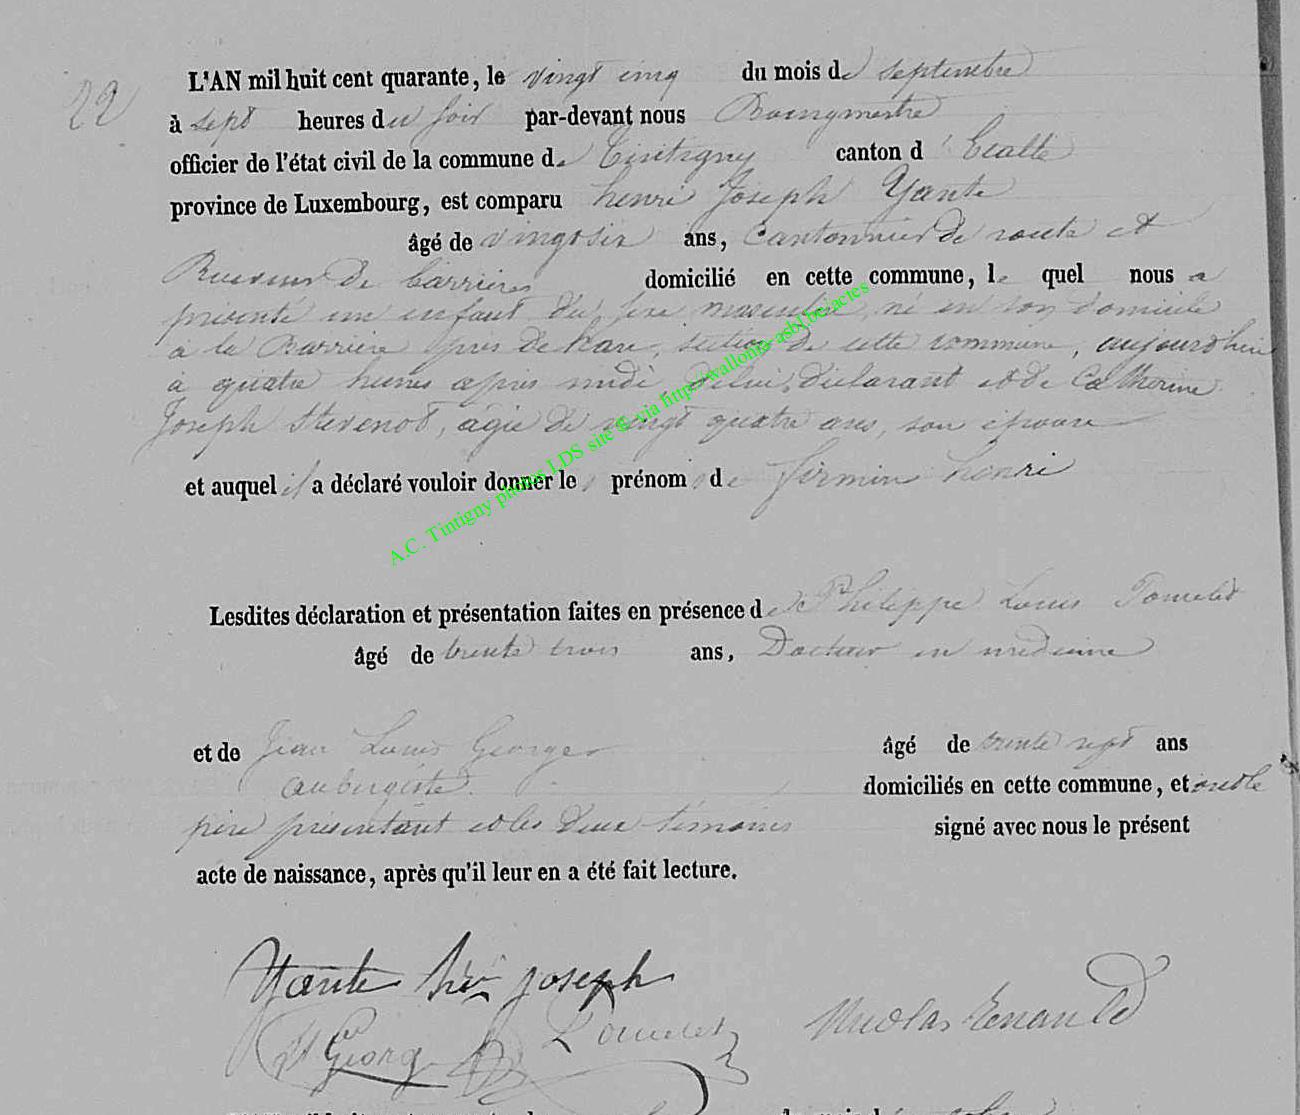 22
L'AN mil huit cent quarante, le vingt cinq du mois de septembre
à sept heures du soir par-devant nous Bourgmestre
officier de l'état civil de la commune de Tintigny canton d' Etalle
province de Luxembourg, est comparu henri Joseph Yante
âgé de vingt six ans, Cantonnier de route et
Receveur de barrières domicilié en cette commune, le quel nous a
présenté un enfant du sexe masculin, né en son domicile
à la Barrière près de han, section de cette commune, aujourd'hui
à quatre heures après midi, de lui, déclarant et de Catherine
Joseph Stevenot, âgée de vingt quatre ans, son épouse
et auquel il a déclaré vouloir donner les prénoms de firmin henri
Lesdites déclaration et présentation faites en présence de Philippe Louis
âgé de trente trois ans, Docteur en médecine
et de Jean Louis Georges âgé de trente sept ans
aubergiste. domiciliés en cette commune, et ont le
père présentant et les deux témoins signé avec nous le présent
acte de naissance, après qu'il leur en a été fait lecture.
Yante hri joseph
Georg
Nicolas Renauld
A.C. Tintigny photos LDS site © via http://wallonia-asbl.be/actes